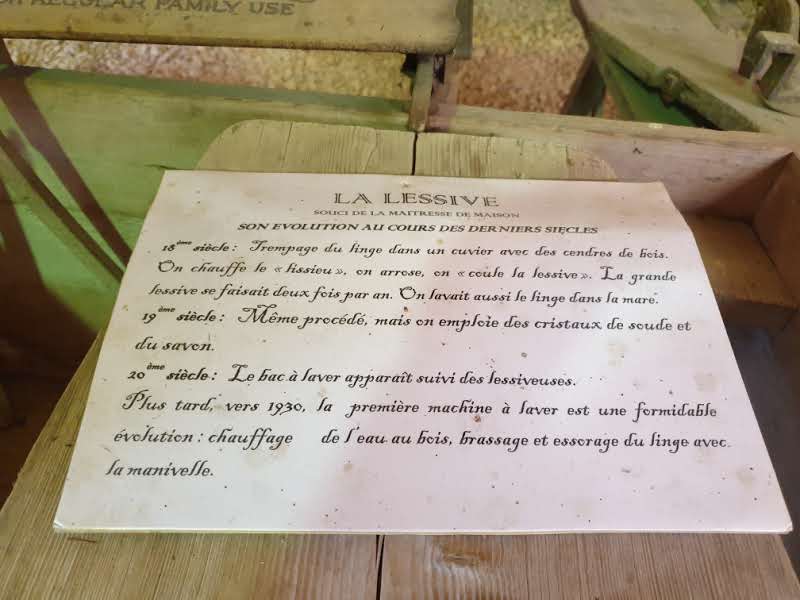 REGULAR FAMILY USE
LA LESSIVE
SOUCI DE LA MAITRESSE DE MAISON
SON EVOLUTION AU COURS DES DERNIERS SIECLES
18ème siècle : Trempage du linge dans un cuvier avec des cendres de bois.
On chauffe le « lissieu », on arrose, on « coule la lessive ». La grande
lessive se faisait deux fois par an. On lavait aussi le linge dans la mare.
19ème siècle : Même procédé, mais on emploie des cristaux de soude et
du savon.
20ème siècle : Le bac à laver apparaît suivi des lessiveuses.
Plus tard, vers 1930, la première machine à laver est une formidable
évolution : chauffage de l'eau au bois, brassage et essorage du linge avec
la manivelle.